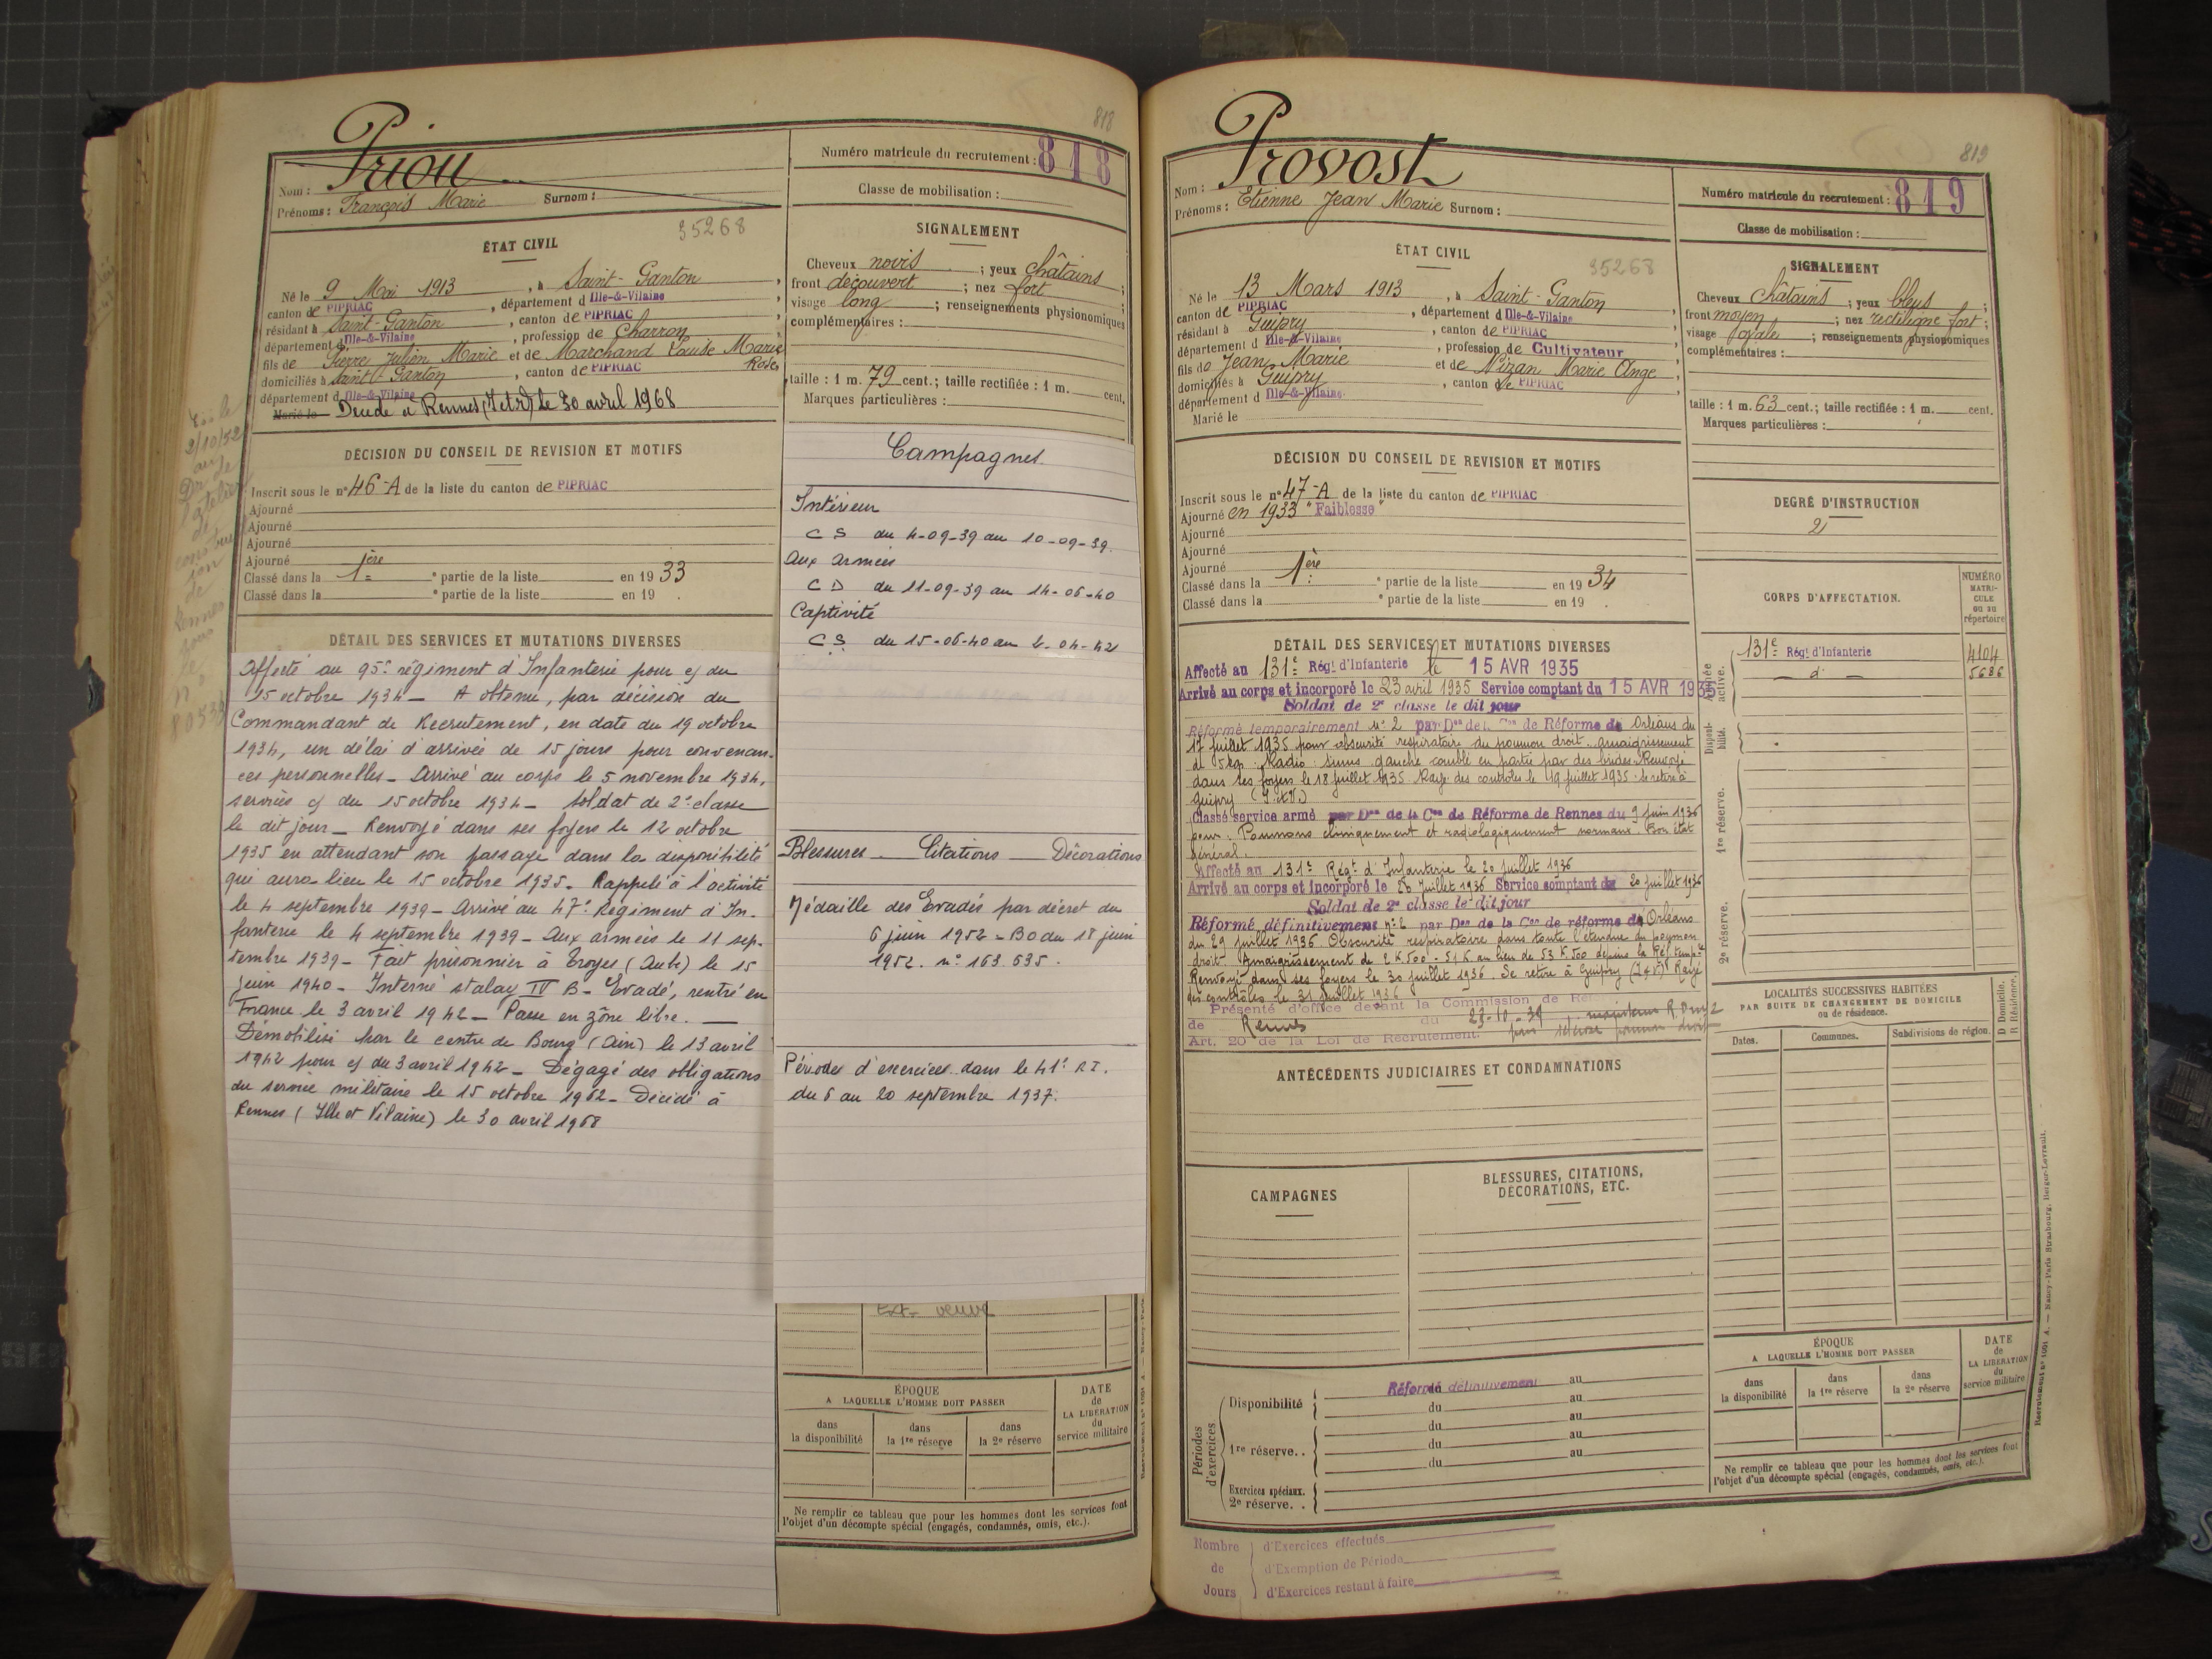 818
Priou
Nom :
Prénoms : François Marie Surnom :
Numéro matricule du recrutement : 818
Classe de mobilisation :
35268
ÉTAT CIVIL
Né le 9 Mai 1913, à Saint-Ganton,
canton de PIPRIAC, département d Ille-&-Vilaine
résidant à Saint-Ganton, canton de PIPRIAC,
département d Ille-&-Vilaine, profession de Charron
fils de Pierre Julien Marie et de Marchand Louise Marie Rose,
domiciliés à Saint-Ganton, canton de PIPRIAC
département d Ille-&-Vilaine
Marié le Décédé à Rennes (I et V) le 30 avril 1968
SIGNALEMENT
Cheveux noirs ; yeux châtains ;
front découvert ; nez fort ;
visage long ; renseignements physionomiques
complémentaires :
taille : 1 m. 79 cent. ; taille rectifiée : 1 m. cent.
Marques particulières :
DÉCISION DU CONSEIL DE REVISION ET MOTIFS
Inscrit sous le n° 46-A de la liste du canton de PIPRIAC
Ajourné
Ajourné
Ajourné
Ajourné
Classé dans la 1ère e partie de la liste en 19 33
Classé dans la e partie de la liste en 19 .
DÉTAIL DES SERVICES ET MUTATIONS DIVERSES
Affecté au 95e régiment d'Infanterie pour cj du
15 octobre 1934 - A obtenu, par décision du
Commandant de Recrutement, en date du 19 octobre
1934, un délai d'arrivée de 15 jours pour convenan-
ces personnelles - Arrivé au corps le 5 novembre 1934,
services cj du 15 octobre 1934 - Soldat de 2e classe
le dit jour - Renvoyé dans ses foyers le 12 octobre
1935 en attendant son passage dans la disponibilité
qui aura lieu le 15 octobre 1935 - Rappelé à l'activité
le 4 septembre 1939 - Arrivé au 47e Régiment d'In-
fanterie le 4 septembre 1939 - Aux armées le 11 sep-
tembre 1939 - Fait prisonnier à Troyes (Aube) le 15
juin 1940 - Interné stalag IV B - Evadé, rentré en
France le 3 avril 1942 - Passe en zône libre. -
Démobilisé par le centre de Bourg (Ain) le 13 avril
1942 pour cj du 3 avril 1942 - Dégagé des obligations
du service militaire le 15 octobre 1962 - Décédé à
Rennes (Ille et Vilaine) le 30 avril 1968
Campagnes
Intérieur
C S du 4-09-39 au 10-09-39.
Aux armées
C D du 11-09-39 au 14-06-40
Captivité
C S du 15-06-40 au 2-04-42
Blessures - Citations - Décorations
Médaille des Evadés par décret du
6 juin 1952 - BO du 18 juin
1952. n° 163.635.
Périodes d'exercices dans le 41e RI.
du 6 au 20 septembre 1937.
Ext. veuve
ÉPOQUE
A LAQUELLE L'HOMME DOIT PASSER
dans la disponibilité
dans la 1re réserve
dans la 2e réserve
DATE de LA LIBÉRATION du service militaire
Ne remplir ce tableau que pour les hommes dont les services font
l'objet d'un décompte spécial (engagés, condamnés, omis, etc.).
819
Provost
Nom :
Prénoms : Etienne Jean Marie Surnom :
Numéro matricule du recrutement : 819
Classe de mobilisation :
ÉTAT CIVIL
35268
Né le 13 Mars 1913, à Saint-Ganton
canton de PIPRIAC, département d Ille-&-Vilaine
résidant à Guipry, canton de PIPRIAC
département d Ille-&-Vilaine, profession de Cultivateur
fils de Jean Marie et de Nizan Marie Ange,
domiciliés à Guipry, canton de PIPRIAC
département d Ille-&-Vilaine.
Marié le
SIGNALEMENT
Cheveux châtains ; yeux bleus ;
front moyen ; nez rectiligne fort ;
visage ovale ; renseignements physionomiques
complémentaires :
taille : 1 m. 63 cent. ; taille rectifiée : 1 m. cent.
Marques particulières :
DÉCISION DU CONSEIL DE REVISION ET MOTIFS
Inscrit sous le n° 47-A de la liste du canton de PIPRIAC
Ajourné en 1933 "Faiblesse"
Ajourné
Ajourné
Ajourné
Classé dans la 1ère e partie de la liste en 19 34
Classé dans la e partie de la liste en 19 .
DEGRÉ D'INSTRUCTION
2
CORPS D'AFFECTATION.
NUMÉRO MATRI-CULE ou au répertoire
Armée active.
131e Rég. d'Infanterie 4104
d° 5686
Disponibilité.
1re réserve.
2e réserve.
DÉTAIL DES SERVICES ET MUTATIONS DIVERSES
Affecté au 131e Rég. d'Infanterie le 15 AVR 1935
Arrivé au corps et incorporé le 23 avril 1935 Service comptant du 15 AVR 1935
Soldat de 2e classe le dit jour
Réformé temporairement n° 2 par Don de l. Con de Réforme de Orléans du
17 juillet 1935 pour obscurité respiratoire du poumon droit. amaigrissement
de 5 kgs. Radio : sinus gauche comblé en partie par des brides. Renvoyé
dans ses foyers le 18 juillet 1935. Rayé des contrôles le 19 juillet 1935. Se retire à
Guipry (I.&V.)
Classé service armé par Don de la Con de Réforme de Rennes du 9 juin 1936
pour : Poumons cliniquement et radiologiquement normaux. Bon état
général.
Affecté au 131e Rég. d'Infanterie le 20 juillet 1936
Arrivé au corps et incorporé le 20 juillet 1936 Service comptant du 20 juillet 1936
Soldat de 2e classe le dit jour
Réformé définitivement n° 2 par Don de la Con de réforme de Orléans
du 29 juillet 1936 Obscurité respiratoire dans toute l'étendue du poumon
droit. Amaigrissement de 2 K 500 - 51 K au lieu de 53 K 500 depuis la Réf. temp.
Renvoyé dans ses foyers le 30 juillet 1936. Se retire à Guipry (I&V) Rayé
des contrôles le 31 juillet 1936
Présenté d'office devant la Commission de Ré
de Rennes du 23-10-39
Art. 20 de la Loi de Recrutement.
LOCALITÉS SUCCESSIVES HABITÉES
PAR SUITE DE CHANGEMENT DE DOMICILE
ou de résidence.
Dates.
Communes.
Subdivisions de région.
D Domicile.
R Résidence.
ANTÉCÉDENTS JUDICIAIRES ET CONDAMNATIONS
CAMPAGNES
BLESSURES, CITATIONS,
DÉCORATIONS, ETC.
Périodes d'exercices
Disponibilité
Réformé définitivement
du au
du au
du au
1re réserve. .
du au
du au
Exercices spéciaux.
2e réserve. .
ÉPOQUE
A LAQUELLE L'HOMME DOIT PASSER
dans la disponibilité
dans la 1re réserve
dans la 2e réserve
DATE de LA LIBÉRATION du service militaire
Ne remplir ce tableau que pour les hommes dont les services font
l'objet d'un décompte spécial (engagés, condamnés, omis, etc.).
Recrutement n° 1091 A. — Nancy-Paris Strasbourg, Berger-Levrault.
Nombre de Jours
d'Exercices effectués
d'Exemption de Période
d'Exercices restant à faire